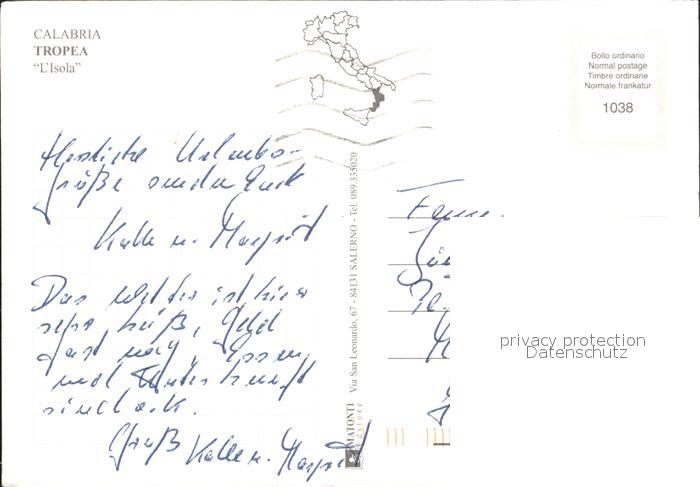 CALABRIA
TROPEA
“L'Isola”
Bollo ordinario
Normal postage
Timbre ordinarie
Normale frankatur
1038
Herzliche Urlaubs-
grüße senden Euch
Kalle u. Margrit
Das Wetter ist hier
sehr heiß, Geld
fast weg, Essen
und Unterkunft
sind o.k.
Gruß Kalle u. Margrit
MATONTI Via San Leonardo, 67 - 84131 SALERNO - Tel. 089.335020
Editore
Fam.
privacy protection
Datenschutz